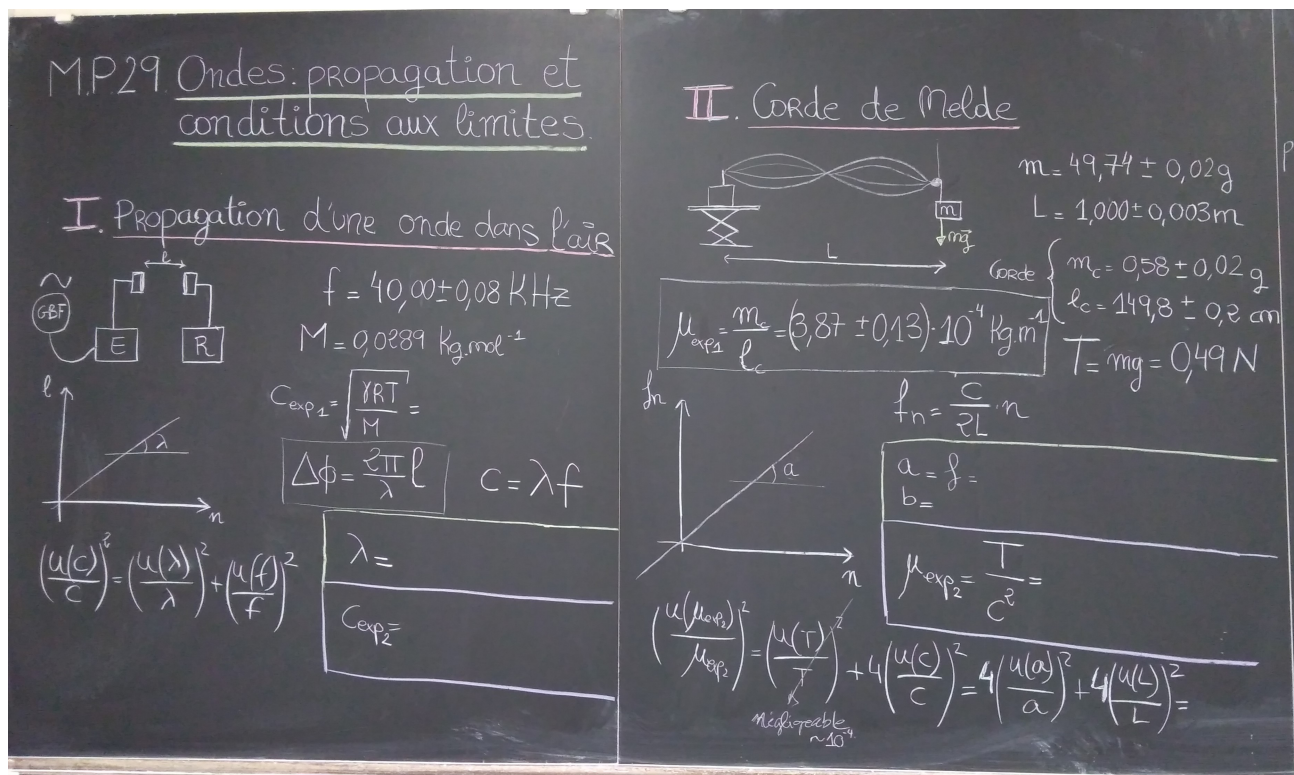 M.P.29. Ondes: propagation et
conditions aux limites.
I. Propagation d'une onde dans l'air
l
GBF
E
R
f = 40,00 ± 0,08 KHz
M = 0,0289 Kg.mol⁻¹
C_exp1 = √(γRT/M) =
Δϕ = (2π/λ) l
c = λf
l
λ
n
(u(c)/c)² = (u(λ)/λ)² + (u(f)/f)²
λ =
C_exp2 =
II. Corde de Melde
m
mg⃗
L
m = 49,74 ± 0,02 g
L = 1,000 ± 0,003 m
Corde { m_c = 0,58 ± 0,02 g
l_c = 149,8 ± 0,2 cm
μ_exp1 = m_c/l_c = (3,87 ± 0,13)·10⁻⁴ Kg.m⁻¹
T = mg = 0,49 N
fn
a
n
f_n = (C/2L)·n
a = f =
b =
μ_exp2 = T/C² =
(u(μ_exp2)/μ_exp2)² = (u(T)/T)² + 4(u(c)/c)² = 4(u(a)/a)² + 4(u(L)/L)² =
négligeable
~10⁻⁴
P